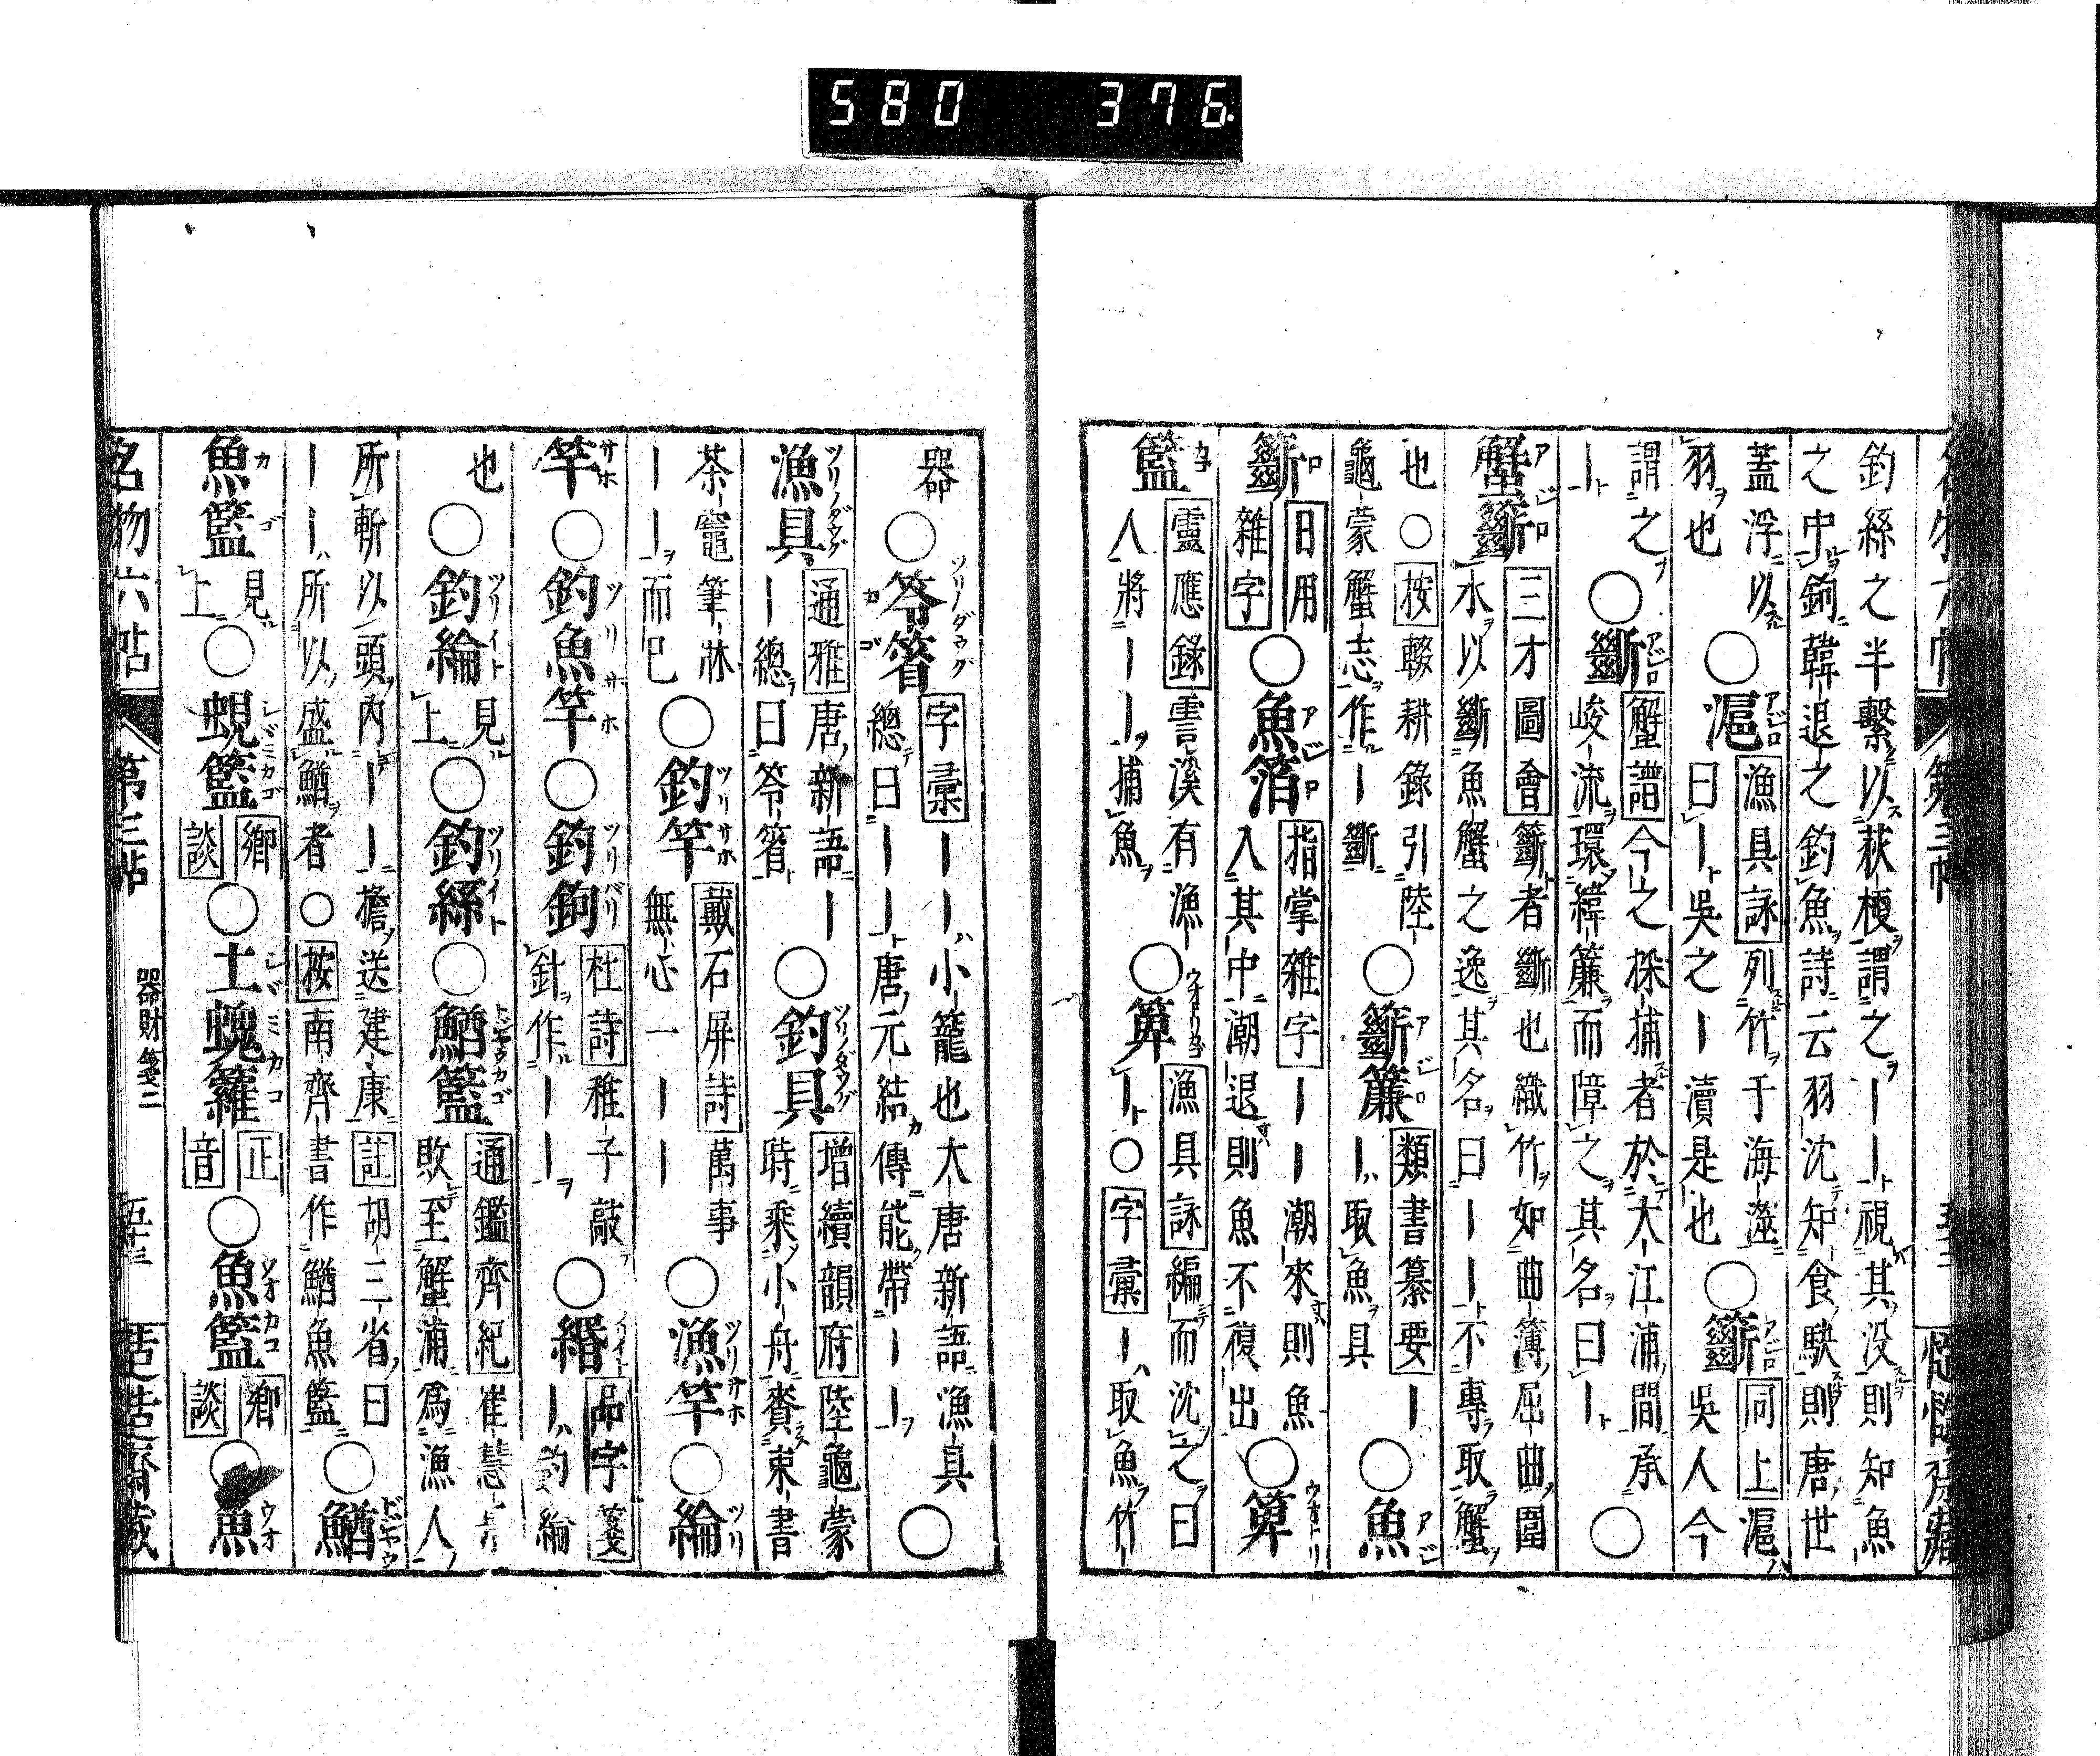 580 376
釣絲之半繫以荻梗謂之｜｜視其没則知魚
之中鉤韓退之釣魚詩云羽沈知食駃則唐世
蓋浮以
羽也
○滬
漁具詠列竹于海澨
曰｜吳之｜瀆是也
○籪
同上滬
吳人今
謂之
｜
○斷
蟹譜今之採捕者於大江浦間承
峻流環緯簾而障之其名曰｜
○
蟹籪
三才圖會籪者斷也織竹如曲簿屈曲圍
水以斷魚蟹之逸其名曰｜｜不專取蟹
也○按輟耕錄引陸
龜蒙蟹志作｜斷
○籪簾
類書纂要｜
｜取魚具
○魚
籪
日用
雜字
○魚箔
指掌雜字｜｜潮來則魚
入其中潮退則魚不復出
○箄
籃
靈應錄雲溪有漁
人將｜｜捕魚
○箄
漁具詠編而沈之曰
｜○字彙｜取魚竹
器
○笭箵
字彙｜｜小籠也大唐新語漁具
總曰｜｜唐元結傳能帶｜｜
○
漁具
通雅唐新語｜
｜總曰笭箵
○釣具
增續韻府陸龜蒙
時乘小舟賫束書
茶竈筆牀
｜｜而已
○釣竿
戴石屏詩萬事
無心一｜｜
○漁竿○綸
竿○釣魚竿○釣鉤
杜詩稚子敲
針作｜｜
○緡
品字箋
｜釣綸
也
○釣綸
見
上
○釣絲○鰌籃
通鑑齊紀崔慧景
敗至蟹浦爲漁人
所斬以頭內｜｜擔送建康註胡三省曰
｜｜所以盛鰌者○按南齊書作鰌魚籃
○鰌
魚籃
見
上
○蜆籃
鄉
談
○土䗯籮
正
音
○魚籃
鄉
談
○魚
名物六帖 第三帖 器財箋二 五十三